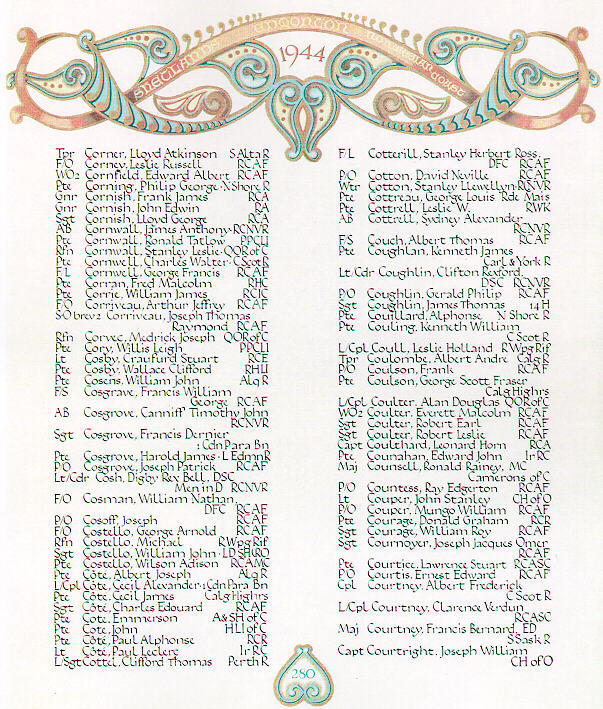 SHETLANDS EMONTON NORWEGIAN COAST
1944
Tpr Corner, Lloyd Atkinson S Alta R
F/O Corner, Leslie Russell RCAF
WO2 Cornfield, Edward Albert RCAF
Pte Corning, Philip George · N Shore R
Gnr Cornish, Frank James RCA
Gnr Cornish, John Edwin RA
Sgt Cornish, Lloyd George RCA
AB Cornwall, James Anthony · RCNVR
Pte Cornwall, Ronald Tatlow PPCLI
Rfn Cornwall, Stanley Leslie · QOR of C
Pte Cornwell, Charles Walter · C Scot R
F/L Cornwell, George Francis RCAF
Pte Corran, Fred Malcolm RHC
Pte Corrie, William James RCIC
F/O Corriveau, Arthur Jeffrey RCAF
S/O brev2 Corriveau, Joseph Thomas
Raymond RCAF
Rfn Corvec, Medrick Joseph QOR of C
Pte Cory, Willis Leigh PPCLI
Lt Cosby, Craufurd Stuart RCE
Pte Cosby, Wallace Clifford RHLI
Pte Cosens, William John Alq R
F/S Cosgrave, Francis William
George RCAF
AB Cosgrove, Canniff Timothy John
RCNVR
Sgt Cosgrove, Francis Dernier
1 Cdn Para Bn
Pte Cosgrove, Harold James · L Edmn R
P/O Cosgrove, Joseph Patrick RCAF
Lt/Cdr Cosh, Digby Rex Bell, DSC
Men in D RCNVR
F/O Cosman, William Nathan,
DFC RCAF
P/O Cosoff, Joseph RCAF
F/O Costello, George Arnold RCAF
Rfn Costello, Michael R Wpg Rif
Sgt Costello, William John · LD SH (RC)
Pte Costello, Wilson Adison RCAMC
Pte Côté, Albert Joseph Alq R
L/Cpl Côté, Cecil Alexander · 1 Cdn Para Bn
Pte Côté, Cecil James Calg Highrs
Sgt Côté, Charles Edouard RCAF
Pte Cote, Emmerson A & SH of C
Pte Cote, John HLI of C
Pte Côté, Paul Alphonse RCR
Lt Côté, Paul Leclerc Ir R C
L/Sgt Cottel, Clifford Thomas Perth R
F/L Cotterill, Stanley Herbert Ross,
DFC RCAF
P/O Cotton, David Neville RCAF
Wtr Cotton, Stanley Llewellyn · RCNVR
Pte Cottreau, George Louis R de Mais
Pte Cottrell, Leslie W. RWK
AB Cottrell, Sydney Alexander
RCNVR
F/S Couch, Albert Thomas RCAF
Pte Coughlan, Kenneth James
Carl & York R
Lt/Cdr Coughlin, Clifton Rexford,
DSC RCNVR
P/O Coughlin, Gerald Philip RCAF
Sgt Coughlin, James Thomas 14 H
Pte Couillard, Alphonse N Shore R
Pte Couling, Kenneth William
C Scot R
L/Cpl Coull, Leslie Holland R Wpg Rif
Tpr Coulombe, Albert André Calg R
P/O Coulson, Frank RCAF
Pte Coulson, George Scott Fraser
Calg Highrs
L/Cpl Coulter, Alan Douglas QOR of C
WO2 Coulter, Everett Malcolm RCAF
Sgt Coulter, Robert Earl RCAF
Sgt Coulter, Robert Leslie RCAF
Capt Coulthard, Leonard Horn RCA
Pte Counahan, Edward John Ir R C
Maj Counsell, Ronald Rainey, MC
Camerons of C
P/O Countess, Ray Edgerton RCAF
Lt Couper, John Stanley CH of O
P/O Couper, Mungo William RCAF
Pte Courage, Donald Graham RCR
Sgt Courage, William Roy RCAF
Sgt Cournoyer, Joseph Jacques Omer
RCAF
Pte Courtice, Lawrence Stuart RCASC
P/O Courtis, Ernest Edward RCAF
Cpl Courtney, Albert Frederick
C Scot R
L/Cpl Courtney, Clarence Verdun
RCASC
Maj Courtney, Francis Bernard, ED
S Sask R
Capt Courtright, Joseph William
CH of O
280